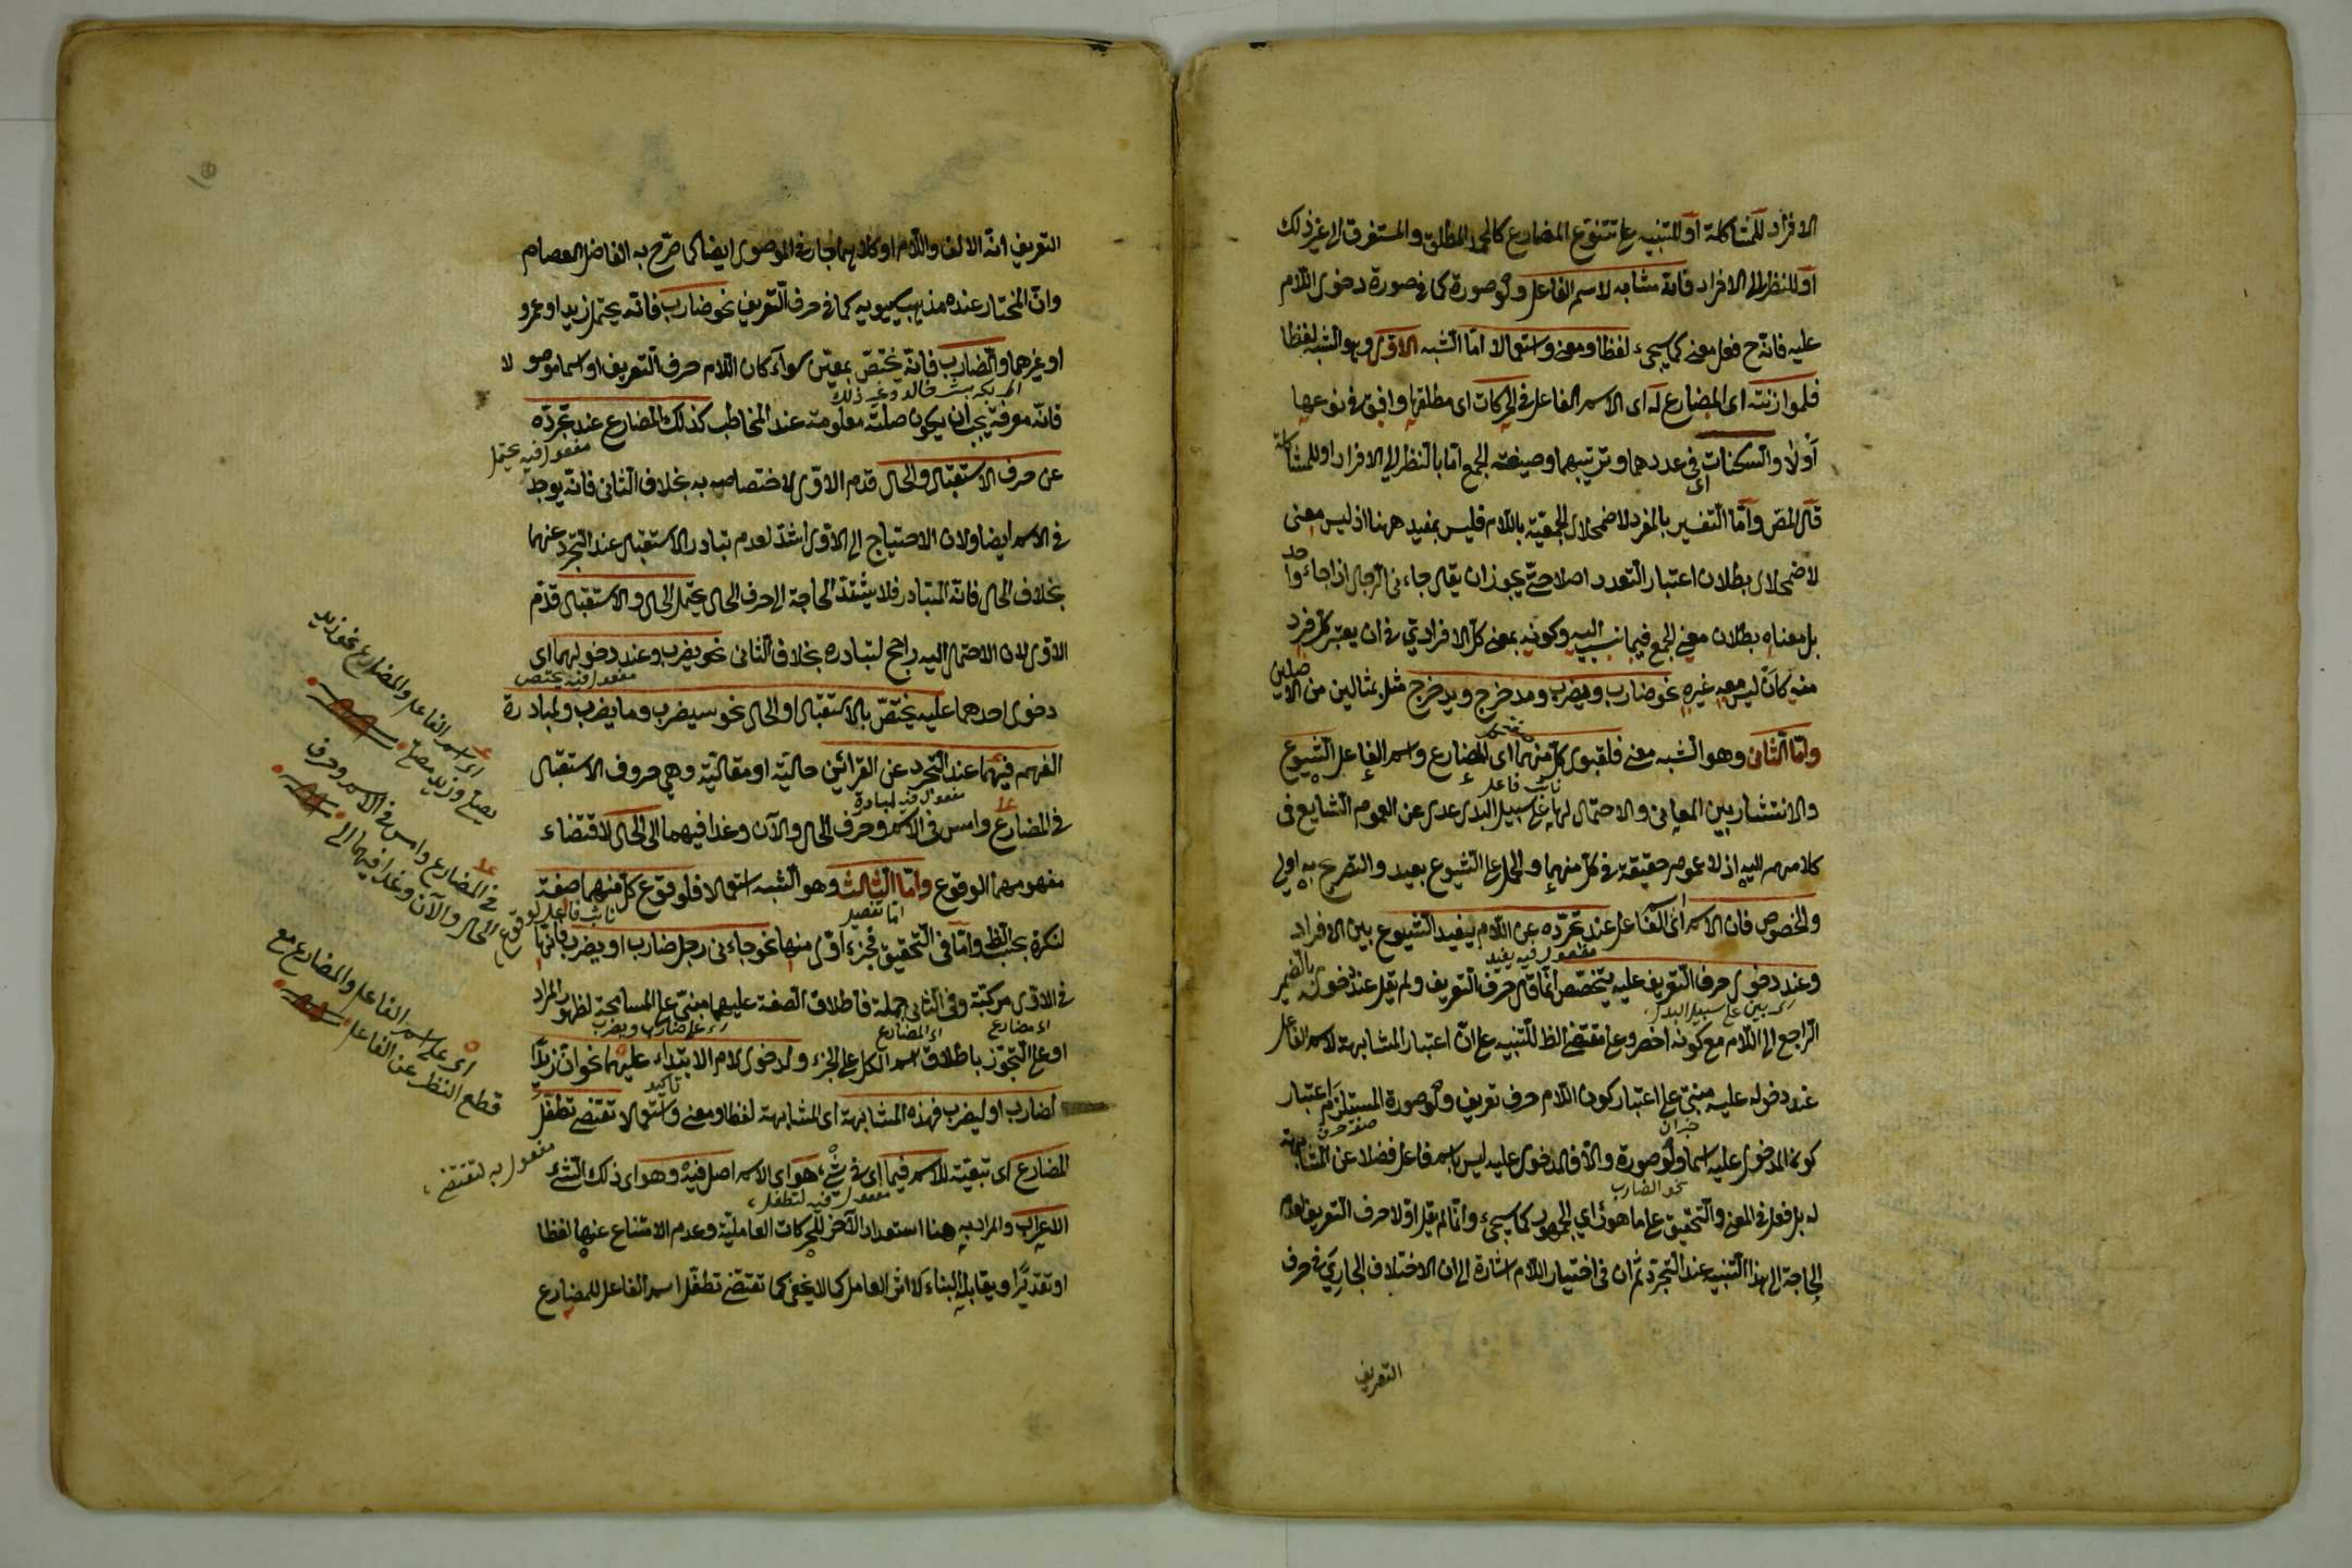 الافراد للمشاكلة او للتنبيه على تنوع المضارع كالمجرد المطلق والمستغرق الى غير ذلك
او للنظر الى الافراد فانه مشابه لاسم الفاعل ولو صورة كما فى صورة دخول اللام
عليه فانه ح فعل معنى كما سيجىء لفظا ومعنى واستعمالا اما الشبه الاول وهو الشبه لفظا
فلموازنته اى المضارع له اى الاسم الفاعل فى الحركات اى مطلقها وافق فى نوعها
أولا والسكنات اى فى عددهما وترتيبهما وصيغته الجمع اما بالنظر الى الافراد او للمشاكلة
قال المص واما التفسير بالمفرد لاضمحلال الجمعية باللام فليس بمفيد ههنا اذ ليس معنى
لاضمحلال بطلان اعتبار التعدد اصلا حتى يجوز ان يقال جاءنى الرجال اذا جاء واحد
بل معناه بطلان معنى الجمع فيما نسب اليه وكونه بمعنى كل الافرادى فى ان يعتبر كل فرد
منه كأن ليس معه غيره نحو ضارب ويضرب ومدخرج ويدخرج مثل بمثالين من الاصلين
واما الثانى وهو الشبه معنى فلقبول كل منهما اى المضارع واسم الفاعل الشيوع
نائب فاعل
والانتشار بين المعانى والاحتمال لها على سبيل البدل عدل عن العموم الشايع فى
كلامهم اليه اذ لا عموم حقيقة فى كل منهما والحمل على الشيوع بعيد والتصريح به اولى
والخصوص فان الاسم اى اسم الفاعل عند تجرده عن اللام يفيد الشيوع بين الافراد
مفعول فيه يفيد
وعند دخول حرف التعريف عليه يتخصص انما قال حرف التعريف ولم يقل عند دخوله بالضمير
اى بين على سبيل البدل
الراجع الى اللام مع كونه اخصر وعلى مقتضى الظ للتنبيه على ان اعتبار المشابهة لاسم الفاعل
عند دخوله عليه مبنى على اعتبار كون اللام حرف تعريف ولو صورة المستلزم اعتبار
خبر ان
صفة حرف
كون المدخول عليه اسما ولو صورة والا فالمدخول عليه ليس باسم فاعل فضلا عن المشابهة
نحو الضارب
له بل فعل فى المعنى والتحقيق على ما هو رأى الجمهور كما سيجىء وانما لم يقل اولا حرف التعريف لعدم
الحاجة الى هذا التنبيه عند التجرد ثم ان فى اختيار اللام اشارة الى ان الاختلاف الجارى فى حرف
التعريف
التعريف انه الالف واللام او كلاهما جار فى الموصول ايضا كما صرح به الفاضل العصام
وان المختار عنده مذهب سيبويه كما فى حرف التعريف نحو ضارب فانه يحتمل زيد او عمرو
او غيرهما والضارب فانه يختص بمعين سواء كان اللام حرف التعريف او اسما موصولا
فانه معرفة يجب ان يكون صلته معلومة عند المخاطب كذلك المضارع عند تجرده
مفعول فيه يحتمل
عن حرف الاستقبال والحال قدم الاول لاختصاصه به بخلاف الثانى فانه يوجد
فى الاسم ايضا ولان الاحتياج الى الاول اشد لعدم تبادر الاستقبال عند التجرد عنهما
بخلاف الحال فانه المتبادر فلا يشتد الحاجة الى حرف الحال يحتمل الحال والاستقبال قدم
الاول لان الاحتمال اليه راجح لتبادره بخلاف الثانى نحو يضرب وعند دخولهما اى
مفعول فيه يختص
دخول احدهما عليه يختص بالاستقبال او الحال نحو سيضرب وما يضرب ولمبادرة
الفهم فيهما عند التجرد عن القرائن حالية او مقالية وهى حروف الاستقبال
مفعول فيه لمبادرة
فى المضارع وامس فى الاسم وحرف الحال والآن وغدا فيهما الى الحال لاقتضاء
مفهومهما الوقوع واما الثالث وهو الشبه استعمالا فلوقوع كل منهما صفة
نائب فاعل لوقوع
لنكرة بحسب الظ واما فى التحقيق فجزء اول منها نحو جاءنى رجل ضارب او يضرب فانها
فى الاول مركبة وفى الثانى جملة فاطلاق الصفة عليهما مبنى على المسامحة لظهور المراد
اى مضارع
اى المضارع
اى على ضارب ويضرب
او على التجوز باطلاق اسم الكل على الجزء ولدخول لام الابتداء عليهما نحو ان زيدا
تأكيد
لضارب او ليضرب فهذه المشابهة اى المشابهة لفظا ومعنى واستعمالا تقتضى تطفل
المضارع اى تبعيته للاسم فيما اى فى شىء هو اى الاسم اصل فيه وهو اى ذلك الشىء
مفعول فيه لتطفل
الاعراب والمراد به هنا استعداد الآخر للحركات العاملية وعدم الامتناع عنها لفظا
او تقديرا ويقابله البناء لا اثر العامل كما لا يخفى كما تقتضى تطفل اسم الفاعل للمضارع
اى اسم الفاعل والمضارع نحو زيد
يصلى وزيد مصل
فى المضارع وامس فى الاسم وحرف
الحال والآن وغدا فيهما الى
اى على اسم الفاعل والمضارع مع
قطع النظر عن الفاعل
مفعول به لتقتضى